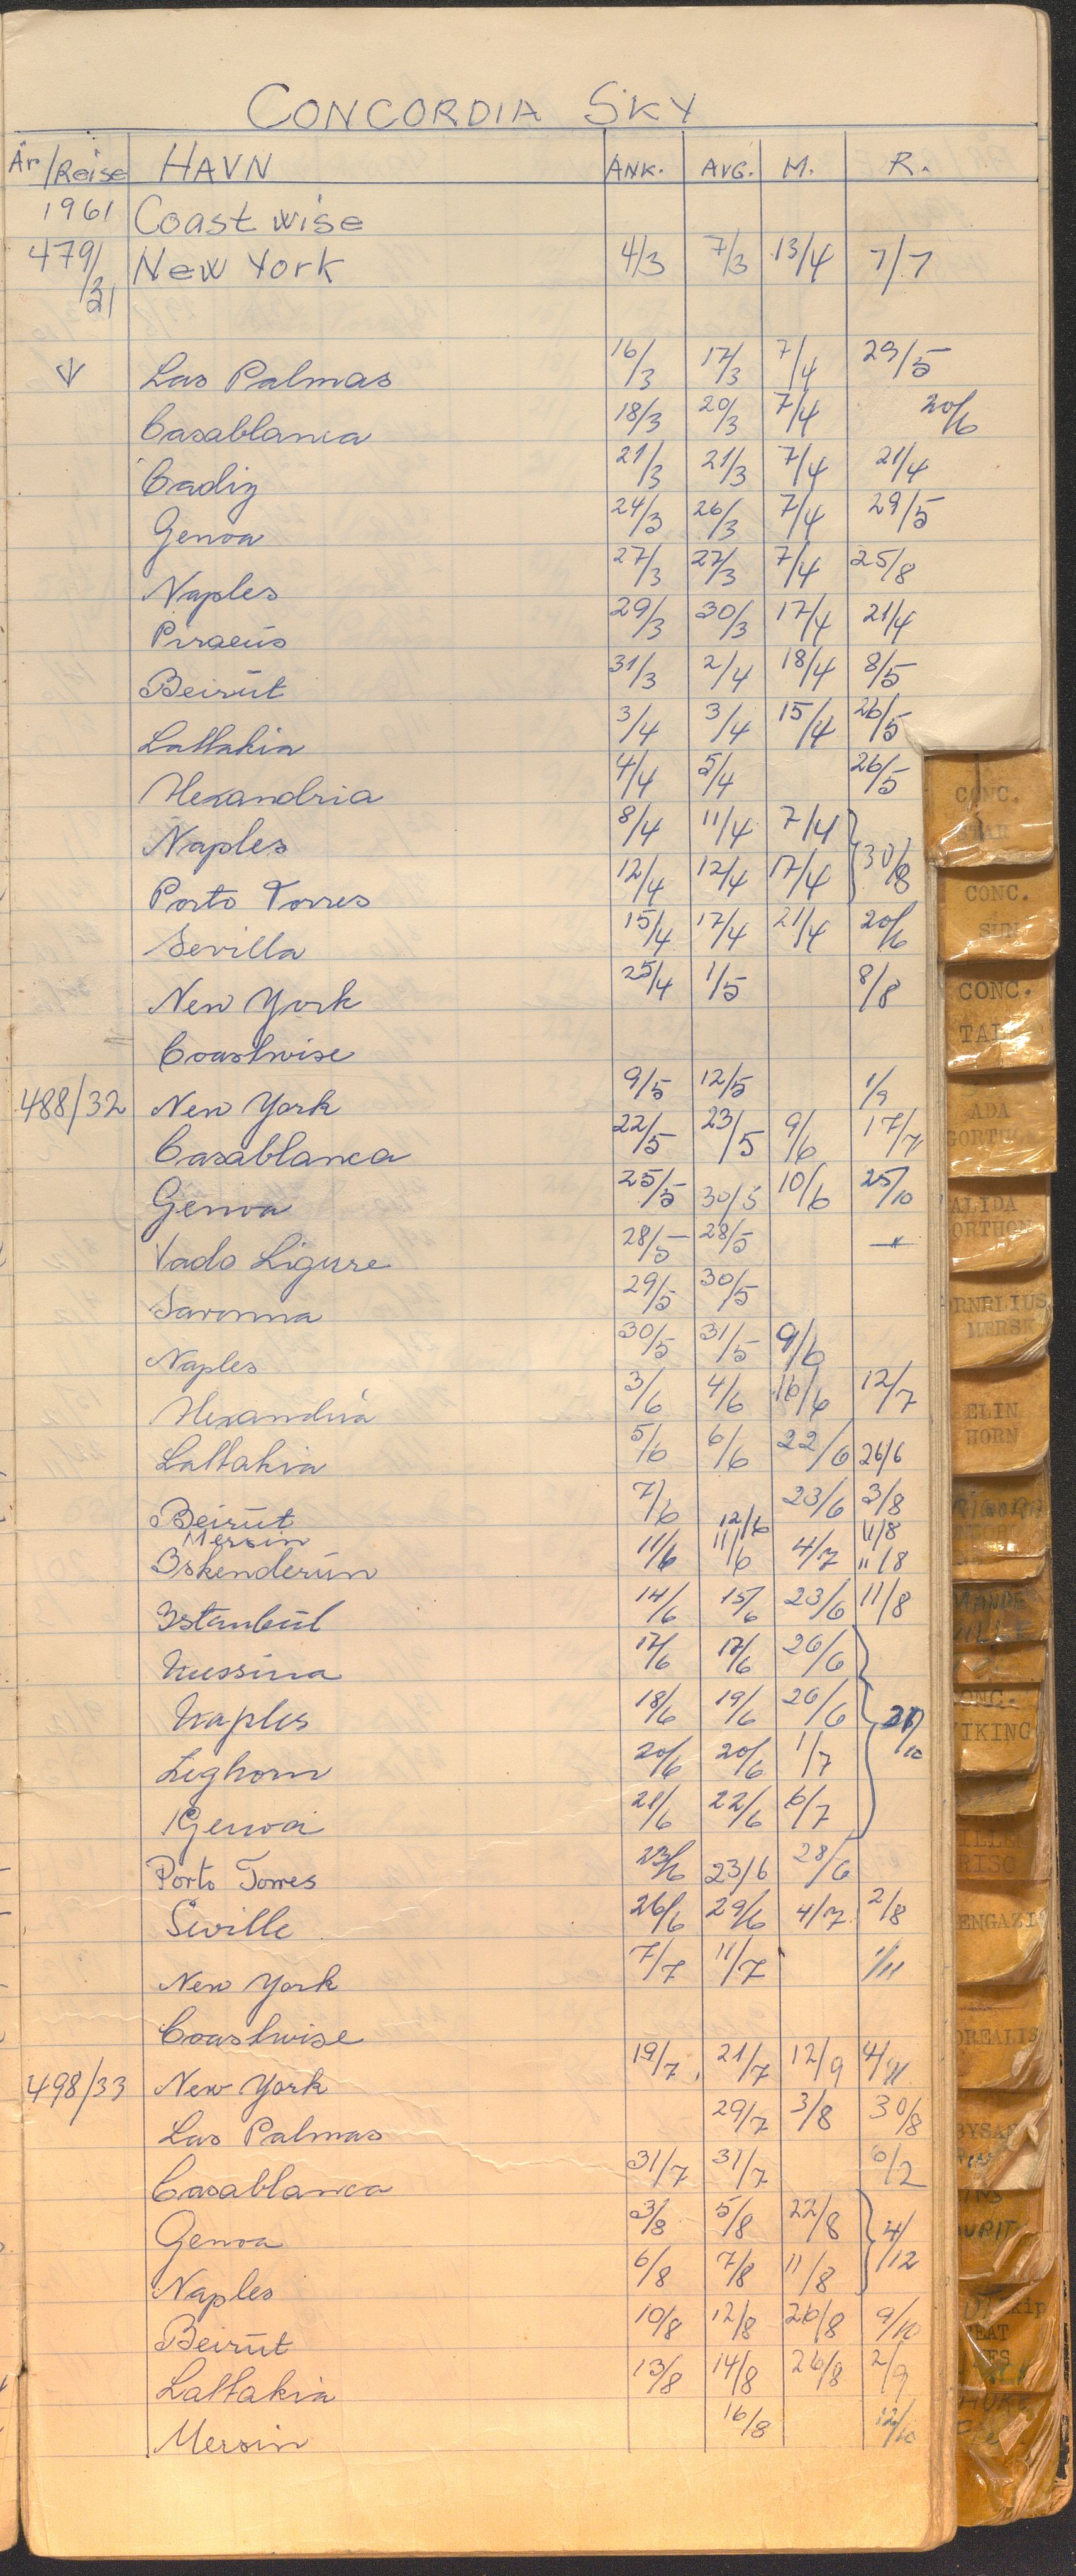 CONCORDIA SKY
År/Reise HAVN ANK. AVG. M. R.
1961 Coastwise
479/ New York 4/3 7/3 13/4 7/7
31
↓ Las Palmas 16/3 17/3 7/4 29/5
Casablanca 18/3 20/3 7/4 20/6
Cadiz 21/3 21/3 7/4 21/4
Genoa 24/3 26/3 7/4 29/5
Naples 27/3 27/3 7/4 25/8
Piraeus 29/3 30/3 17/4 21/4
Beirut 31/3 2/4 18/4 8/5
Lattakia 3/4 3/4 15/4 26/5
Alexandria 4/4 5/4 26/5
Naples 8/4 11/4 7/4
Porto Torres 12/4 12/4 17/4 30/8
Sevilla 15/4 17/4 21/4 20/6
New York 25/4 1/5 8/8
Coastwise
488/32 New York 9/5 12/5 1/9
Casablanca 22/5 23/5 9/6 17/7
Genoa 25/5 30/5 10/6 25/10
Vado Ligure 28/5 28/5 —"—
Savonna 29/5 30/5
Naples 30/5 31/5 9/6
Alexandria 3/6 4/6 16/6 12/7
Lattakia 5/6 6/6 22/6 26/6
Beirut 7/6 12/6 23/6 3/8
Mersin 11/8
Iskenderun 11/6 11/6 4/7 11/8
Istanbul 14/6 15/6 23/6 11/8
Messina 17/6 17/6 26/6
Naples 18/6 19/6 26/6
Leghorn 20/6 20/6 1/7
Genoa 21/6 22/6 6/7
Porto Torres 23/6 23/6 28/6
Seville 26/6 29/6 4/7 2/8
New York 7/7 11/7 1/11
Coastwise
498/33 New York 19/7 21/7 12/9 4/11
Las Palmas 29/7 3/8 30/8
Casablanca 31/7 31/7 6/2
Genoa 3/8 5/8 22/8 4/12
Naples 6/8 7/8 11/8
Beirut 10/8 12/8 26/8 9/10
Lattakia 13/8 14/8 26/8 2/9
Mersin 16/8 12/10
CONC.
CONC.
SUN
CONC.
ADA
ELIN
HORN